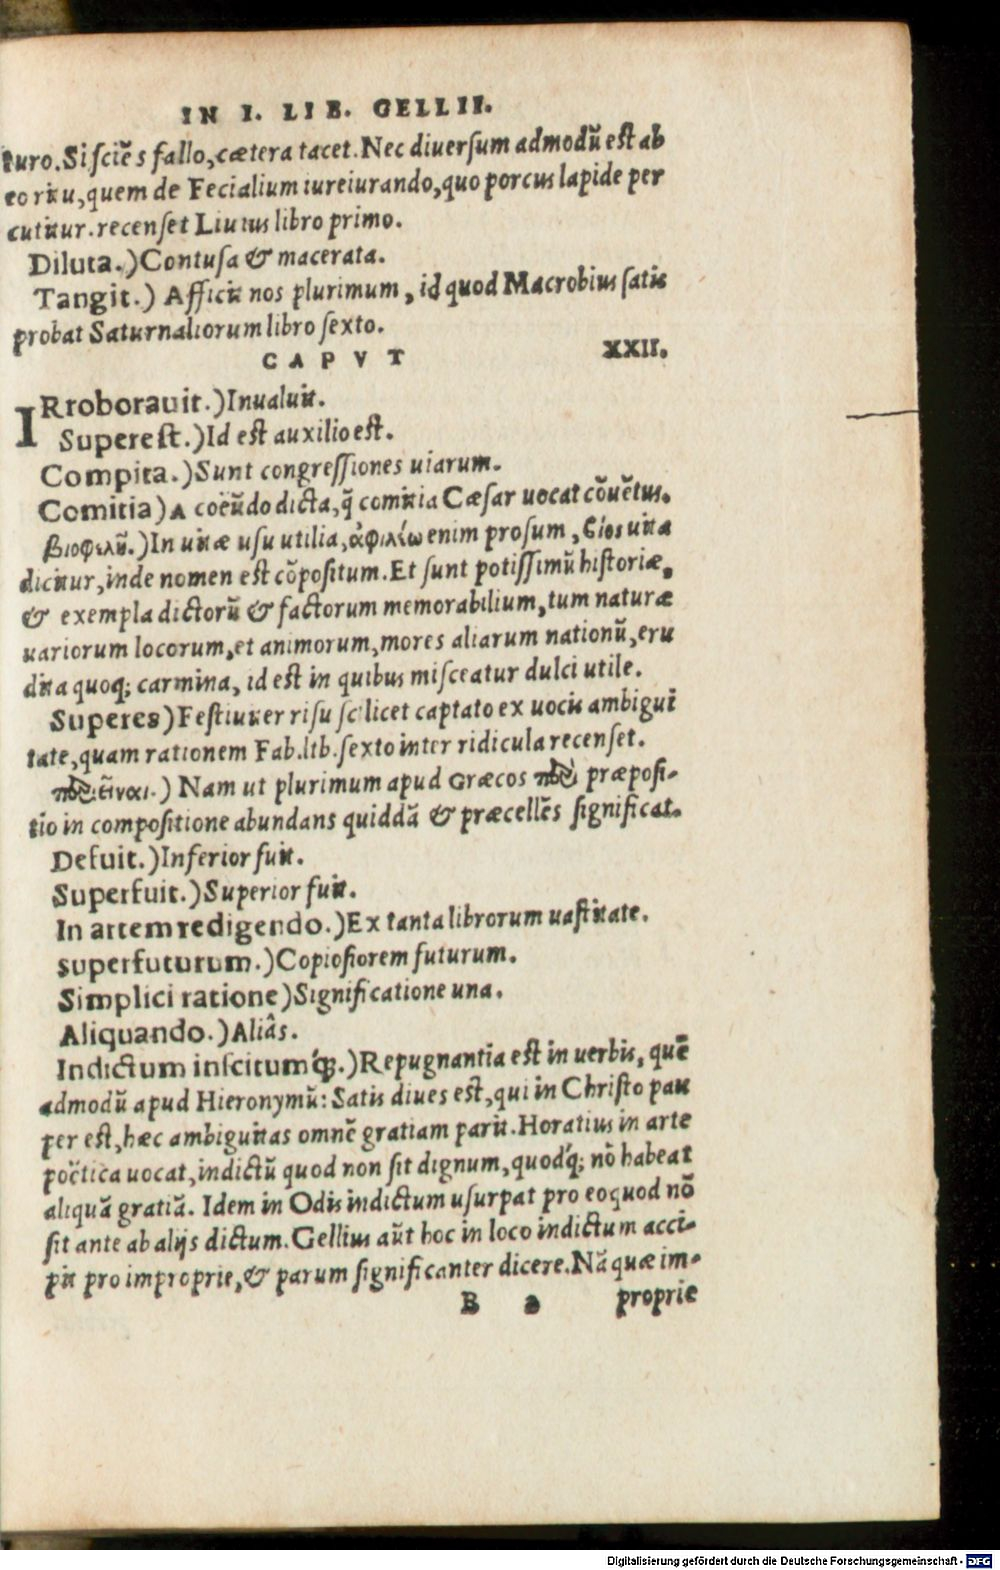 IN I. LIB. GELLII.
turo. Si sciẽs fallo, cætera tacet. Nec diuersum admodũ est ab
eo ritu, quem de Fecialium iureiurando, quo porcus lapide per
cutitur. recenset Liuius libro primo.
Diluta.) Contusa & macerata.
Tangit.) Afficit nos plurimum, id quod Macrobius satis
probat Saturnaliorum libro sexto.
CAPVT XXII.
IRroborauit.) Inualuit.
Superest.) Id est auxilio est.
Compita.) Sunt congressiones uiarum.
Comitia) A coeũdo dicta, q̃ comitia Cæsar uocat cõuẽtus.
βιοφιλῆ.) In uitæ usu utilia, enim prosum, βίος uita
dicitur, inde nomen est cõpositum. Et sunt potissimũ historiæ,
& exempla dictorũ & factorum memorabilium, tum naturæ
uariorum locorum, et animorum, mores aliarum nationũ, eru
dita quoq; carmina, id est in quibus misceatur dulci utile.
Superes) Festiuiter risu scilicet captato ex uocis ambigui
tate, quam rationem Fab. lib. sexto inter ridicula recenset.
περιεῖναι.) Nam ut plurimum apud Græcos περὶ præposi-
tio in compositione abundans quiddã & præcellẽs significat.
Defuit.) Inferior fuit.
Superfuit.) Superior fuit.
In artem redigendo.) Ex tanta librorum uastitate.
superfuturum.) Copiosiorem futurum.
Simplici ratione) Significatione una.
Aliquando.) Aliâs.
Indictum inscitumq́;.) Repugnantia est in uerbis, quẽ
admodũ apud Hieronymũ: Satis diues est, qui in Christo pau
per est, hæc ambiguitas omnẽ gratiam parit. Horatius in arte
poëtica uocat, indictũ quod non sit dignum, quodq́; nõ habeat
aliquã gratiã. Idem in Odis indictum usurpat pro eo quod nõ
sit ante ab alijs dictum. Gellius aũt hoc in loco indictum acci-
pit pro improprie, & parum significanter dicere. Nã quæ im-
B 2 proprie
Digitalisierung gefördert durch die Deutsche Forschungsgemeinschaft - DFG